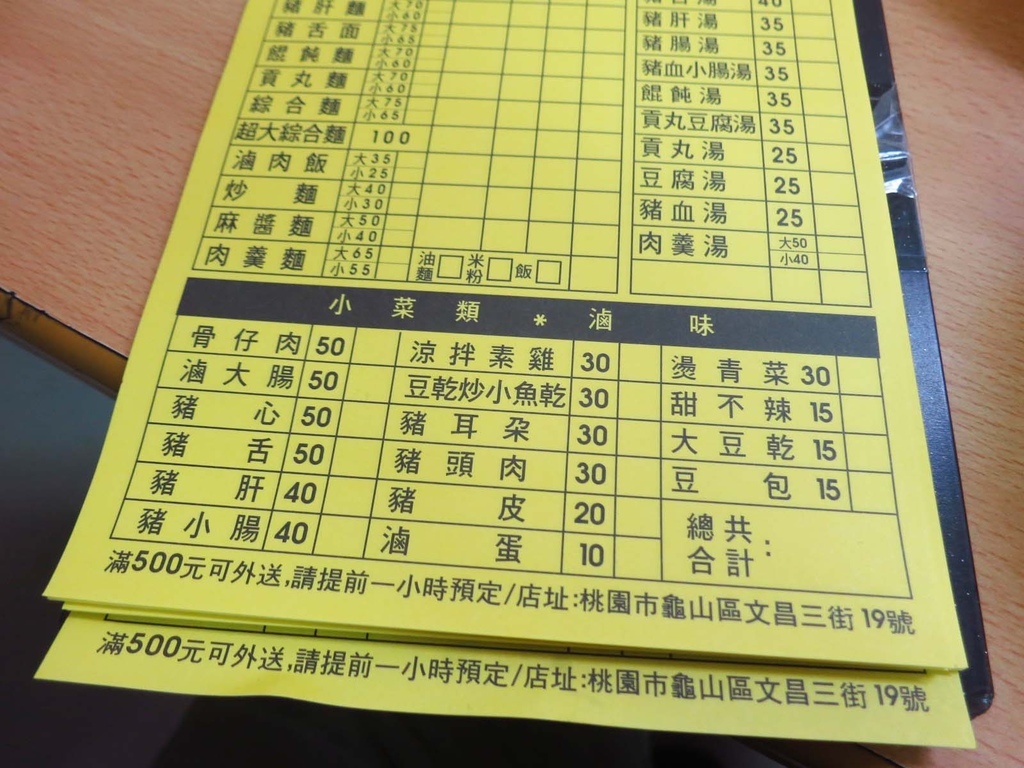 豬肝麵 大70 小60
豬舌面 大75 小65
餛飩麵 大70 小60
貢丸麵 大70 小60
綜合麵 大75 小65
超大綜合麵 100
滷肉飯 大35 小25
炒麵 大40 小30
麻醬麵 大50 小40
肉羹麵 大65 小55 油麵 米粉 飯
40
豬肝湯 35
豬腸湯 35
豬血小腸湯 35
餛飩湯 35
貢丸豆腐湯 35
貢丸湯 25
豆腐湯 25
豬血湯 25
肉羹湯 大50 小40
小菜類 * 滷味
骨仔肉 50 涼拌素雞 30 燙青菜 30
滷大腸 50 豆乾炒小魚乾 30 甜不辣 15
豬心 50 豬耳朵 30 大豆乾 15
豬舌 50 豬頭肉 30 豆包 15
豬肝 40 豬皮 20 總共
豬小腸 40 滷蛋 10 合計:
滿500元可外送,請提前一小時預定/店址:桃園市龜山區文昌三街19號
滿500元可外送,請提前一小時預定/店址:桃園市龜山區文昌三街19號